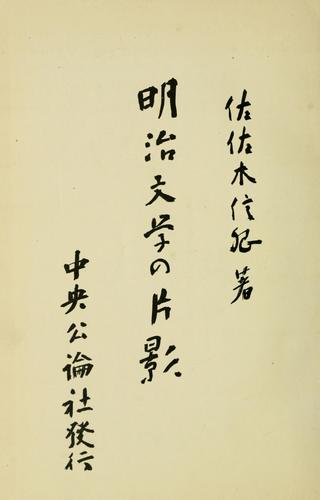 佐佐木信綱著
明治文学の片影
中央公論社發行